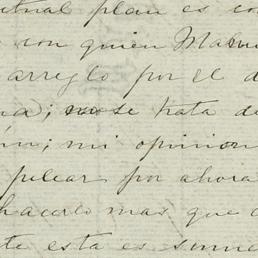 plan es co
con quien Manu
arreglo por el d
a; no se trata de
ún; mi opinion
pelear por ahora
hacerlo mas que
te esta es